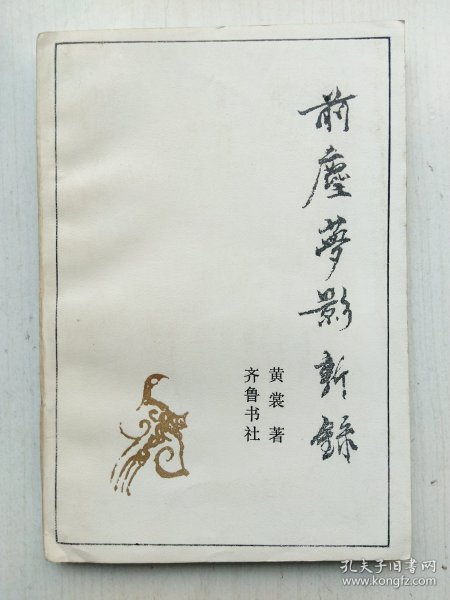 前塵夢影新錄
黄裳著
齐鲁书社
孔夫子旧书网
www.kongfz.com